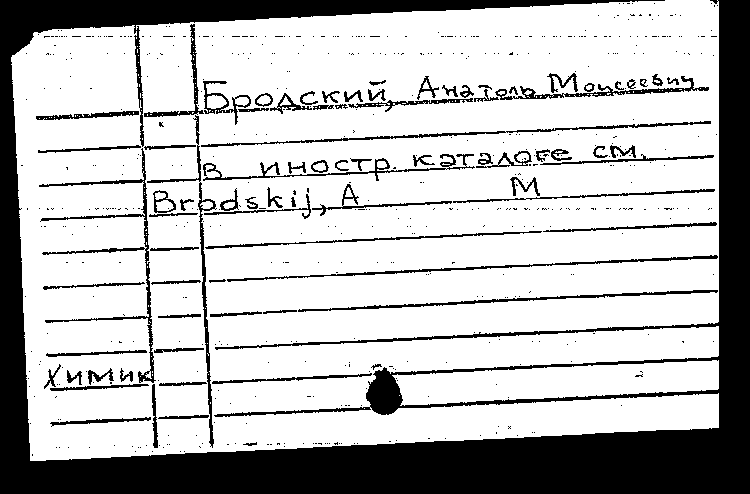 Бродский, Анатоль Моисеевич
в иностр каталоге см.
Brodskij, A M
химик